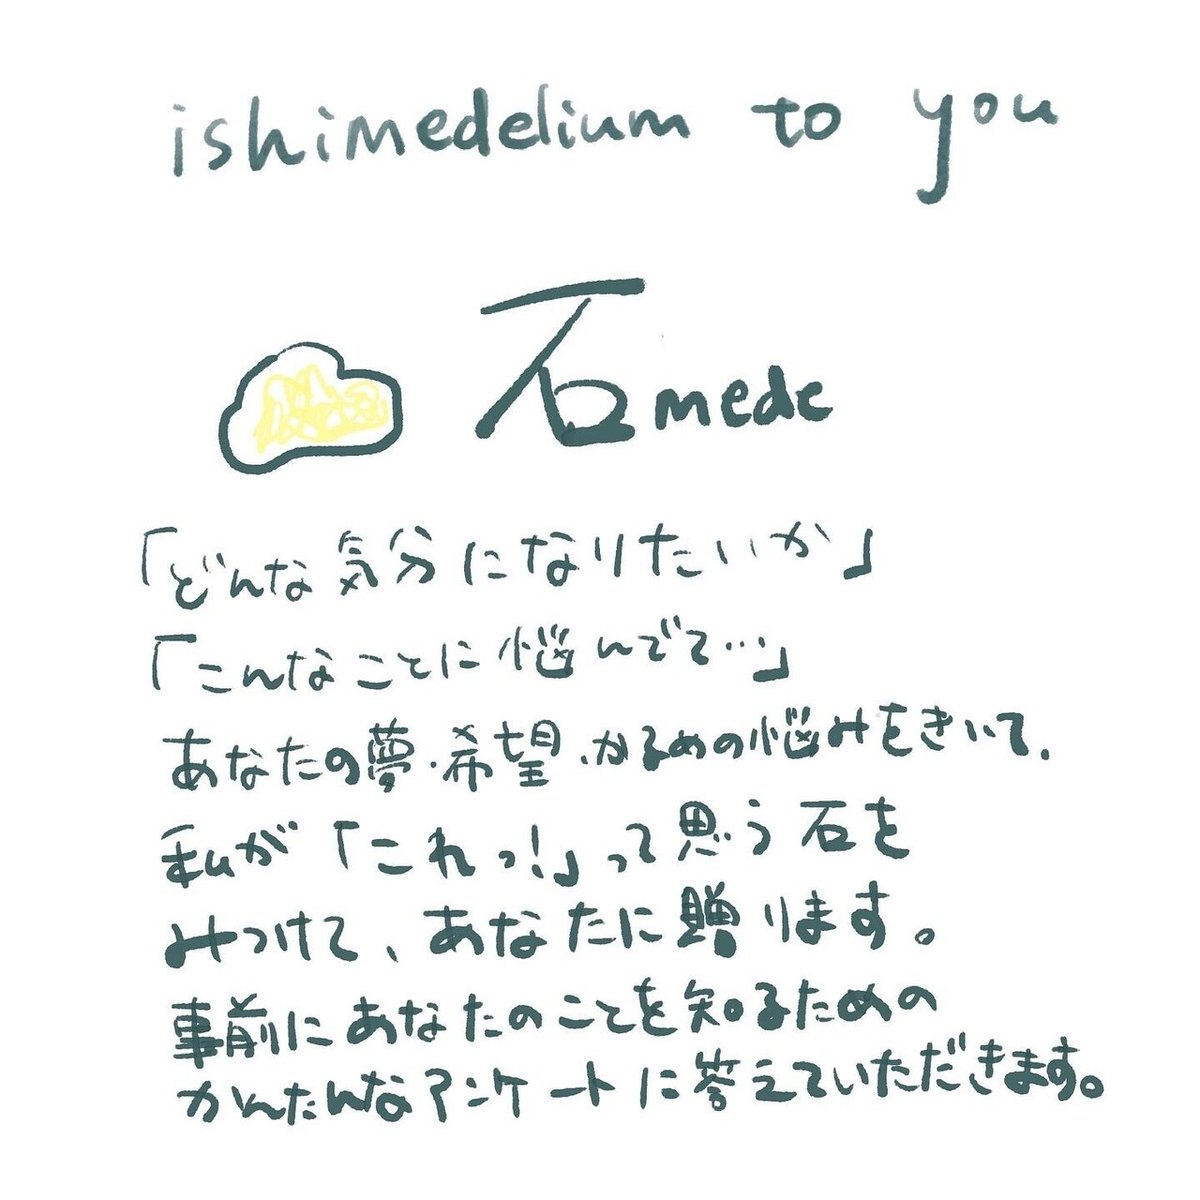 ishimedelium to you
石mede
「どんな気分になりたいか」
「こんなことに悩んでて…」
あなたの夢・希望・かるめの悩みをきいて、
私が「これっ!」って思う石を
みつけて、あなたに贈ります。
事前にあなたのことを知るための
かんたんなアンケートに答えていただきます。